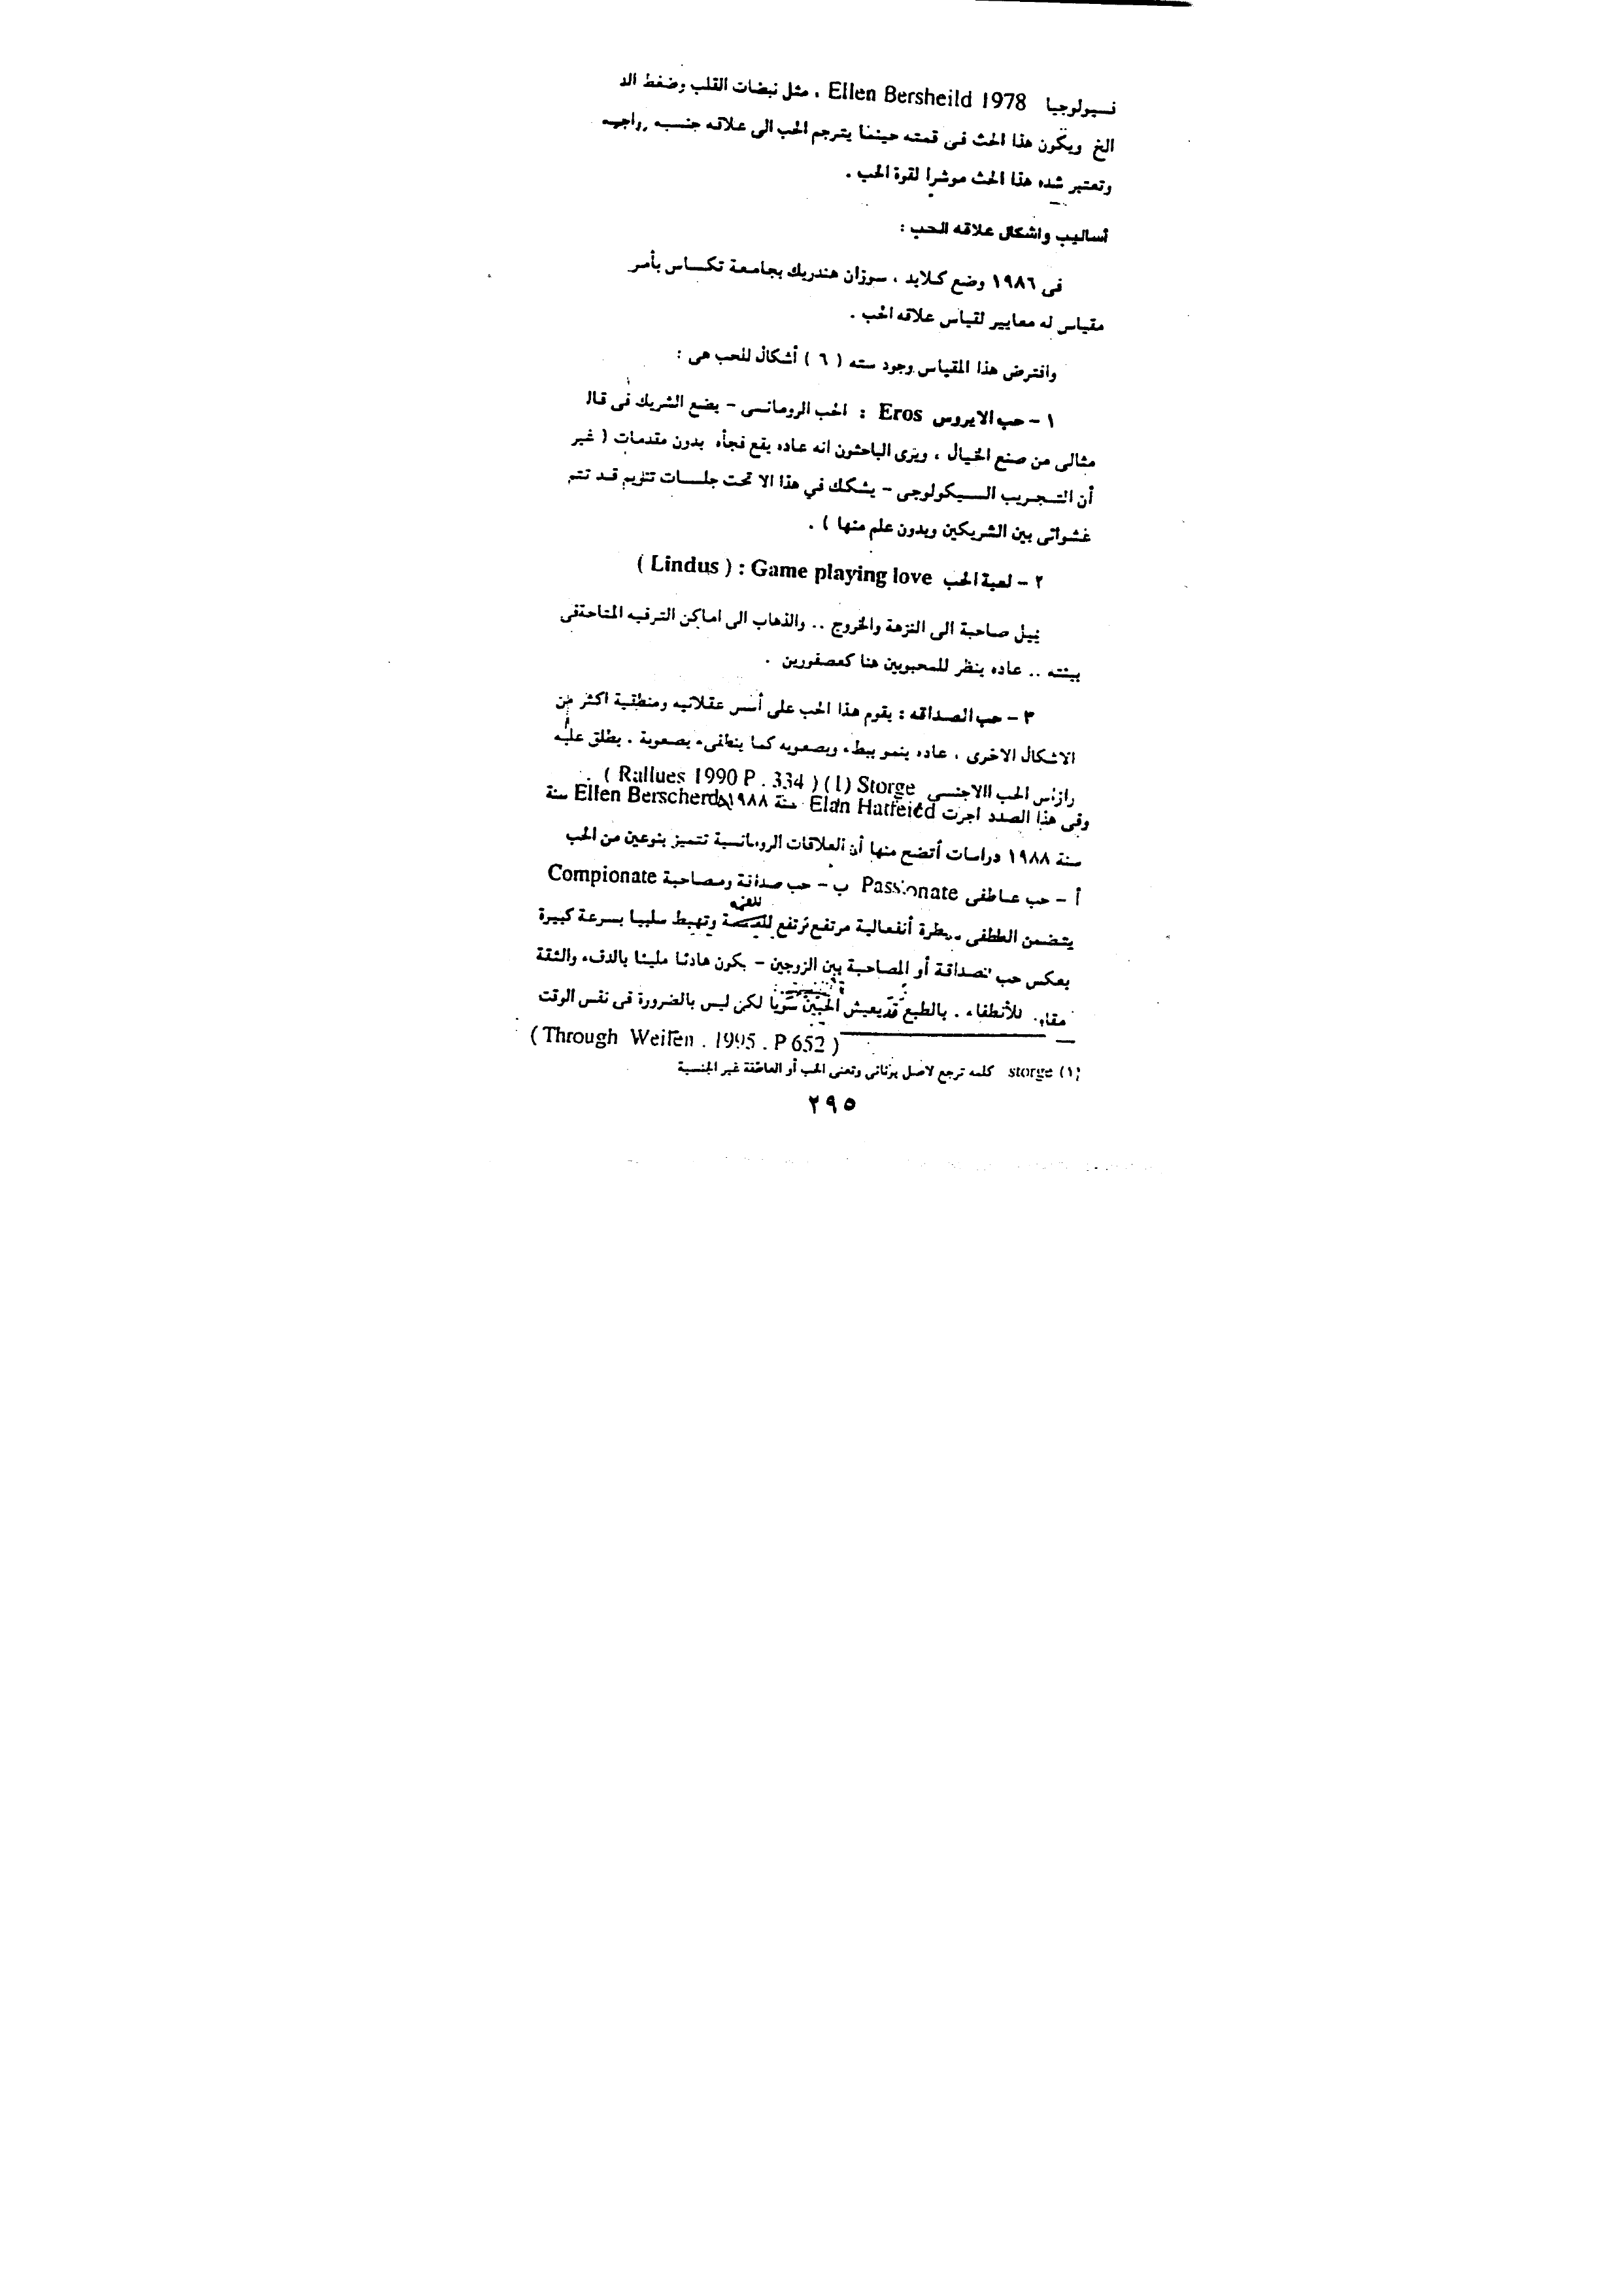 فسيولوجيا Ellen Bersheild 1978 ، مثل نبضات القلب وضغط الد
الخ ويكون هذا الحث فى قمته حينما يترجم الحب الى علاقه جنسيه
وتعتبر شده هذا الحث موشرا لقوة الحب .
أساليب واشكال علاقه الحب :
فى ١٩٨٦ وضع كلايد ، سوزان هندريك بجامعة تكساس بأمر
مقياس له معايير لقياس علاقه الحب .
وافترض هذا المقياس وجود سته ( ٦ ) أشكال للحب هى :
١ - حب الايروس Eros : الحب الرومانسى - يضع الشريك فى قال
مثالى من صنع الخيال ، ويرى الباحثون انه عاده يقع فجأه بدون مقدمات ( غير
أن التجريب السيكولوجى - يشكك في هذا الا تحت جلسات تنويم قد تتم
عشوائى بين الشريكين وبدون علم منها ) .
٢ - لعبة الحب Game playing love : ( Lindus )
يميل صاحبة الى النزهة والخروج .. والذهاب الى اماكن الترفيه المتاحةفى
بيئته .. عاده ينظر للمحبوبين هنا كعصفورين .
٣ - حب الصداقه : يقوم هذا الحب على أسس عقلانيه ومنطقية اكثر من
الاشكال الاخرى ، عاده ينمو ببطء وبصعوبه كما ينطفىء بصعوبة . يطلق عليه
الحب اللاجنسى Storge (1) ( Rallues 1990 P . 334 ) .
وفى هذا الصدد اجرت Elan Hatfeied سنة ١٩٨٨ Ellen Berscherd سنة
سنة ١٩٨٨ دراسات أتضح منها أن العلاقات الرومانسية تتميز بنوعين من الحب
أ - حب عاطفى Passionate ب - حب صداقة ومصاحبة Compionate
يتضمن العطفى أنفعالية مرتفع ترتفع للقمه وتهبط سلبيا بسرعة كبيرة
بعكس حب الصداقة أو المصاحبة بين الزوجين - يكون هادئا مليئا بالدفء والثقة
للأنطفاء . بالطبع قد يعيش الحبين سويا لكن ليس بالضرورة فى نفس الوقت
( Through Weiten . 1995 . P 652 )
(١) storge كلمه ترجع لاصل يونانى وتعنى الحب أو العاطفة غير الجنسية
٢٩٥